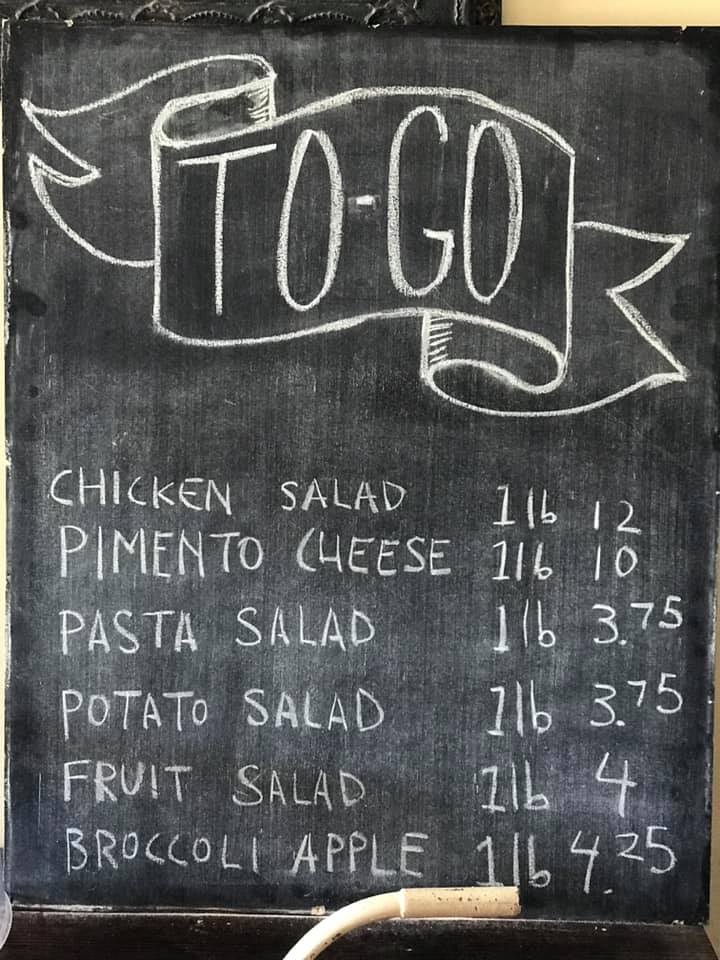 TO-GO
CHICKEN SALAD 1lb 12
PIMENTO CHEESE 1lb 10
PASTA SALAD 1lb 3.75
POTATO SALAD 1lb 3.75
FRUIT SALAD 1lb 4
BROCCOLI APPLE 1lb 4.25